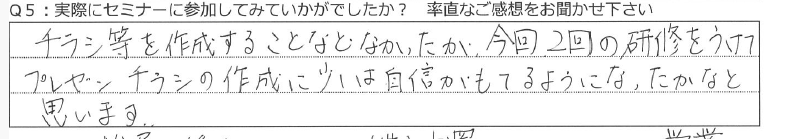 Q5：実際にセミナーに参加してみていかがでしたか？　率直なご感想をお聞かせ下さい
チラシ等を作成することなどなかったが、今回2回の研修をうけて
プレゼン チラシの作成に少しは自信がもてるようになったかなと
思います。